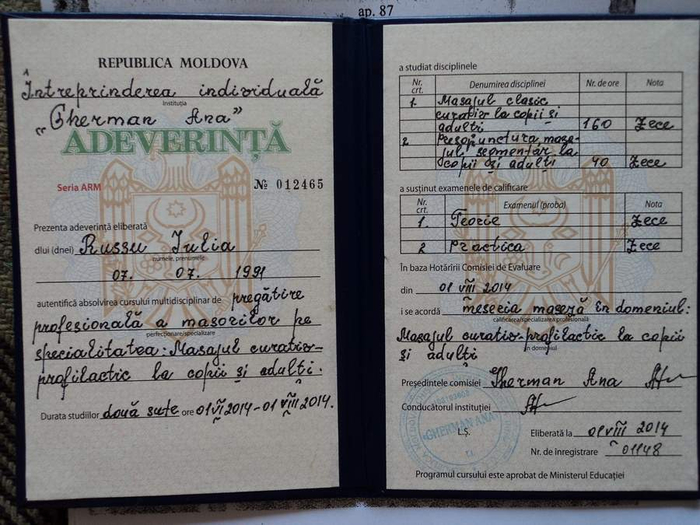 ap. 87
REPUBLICA MOLDOVA
Întreprinderea individuală
Instituția
"Gherman Ana"
ADEVERINȚĂ
Seria ARM № 012465
Prezenta adeverință eliberată
dlui (dnei) Russu Iulia
numele, prenumele
07. 07. 1991
autentifică absolvirea cursului multidisciplinar de pregătire
profesională a masorilor pe
perfecționare/specializare
specialitatea: Masajul curativ-
profilactic la copii și adulți.
Durata studiilor două sute ore 01 VI 2014 - 01 VIII 2014.
a studiat disciplinele
Nr. crt. Denumirea disciplinei Nr. de ore Nota
1. Masajul clasic
curativ la copii și
adulți 160 Zece
2. Presopunctura masa-
jul segmentar la
copii și adulți 40 Zece
a susținut examenele de calificare
Nr. crt. Examenul (proba) Nota
1. Teorie Zece
2 Practica Zece
În baza Hotărîrii Comisiei de Evaluare
din 01 VIII 2014
i se acordă meseria maseză în domeniul:
calificarea/specializarea profesională
Masajul curativ-profilactic la copii
în domeniul
și adulți
Președintele comisiei Gherman Ana
Conducătorul instituției
GHERMAN ANA
L.Ș. Eliberată la 01 VIII 2014
Nr. de înregistrare 01148
Programul cursului este aprobat de Ministerul Educației